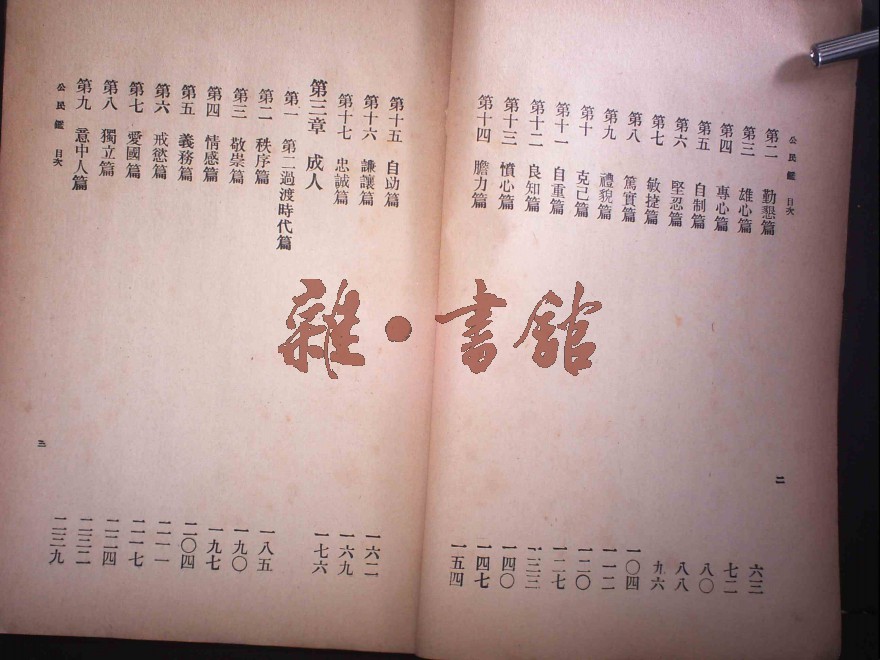 公民鑑 目次 二
第二 勤懇篇 六三
第三 雄心篇 七二
第四 專心篇 八〇
第五 自制篇 八八
第六 堅忍篇 九六
第七 敏捷篇 一〇四
第八 篤實篇 一一二
第九 禮貌篇 一二〇
第十 克己篇 一二七
第十一 自重篇 一三三
第十二 良知篇 一四〇
第十三 憤心篇 一四七
第十四 膽力篇 一五四
第十五 自助篇 一六二
第十六 謙讓篇 一六九
第十七 忠誠篇 一七六
第三章 成人
第一 第二過渡時代篇 一八五
第二 秩序篇 一九〇
第三 敬崇篇 一九七
第四 情感篇 二〇四
第五 義務篇 二一一
第六 戒慾篇 二一七
第七 愛國篇 二二四
第八 獨立篇 二三二
第九 意中人篇 二三九
公民鑑 目次 三
雜·書館